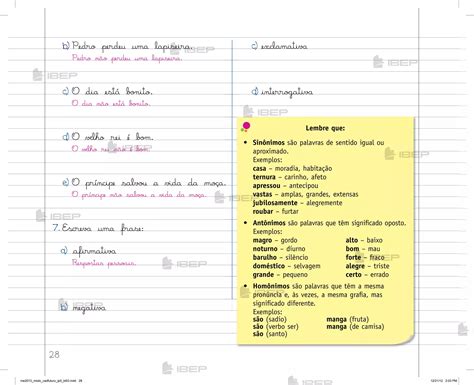 b) Pedro perdeu uma lapiseira.
Pedro não perdeu uma lapiseira.
c) O dia está bonito.
O dia não está bonito.
d) O velho rei é bom.
O velho rei não é bom.
e) O príncipe salvou a vida da moça.
O príncipe não salvou a vida da moça.
7. Escreva uma frase:
a) afirmativa
Resposta pessoal.
b) negativa
c) exclamativa
d) interrogativa
Lembre que:
• Sinônimos são palavras de sentido igual ou
aproximado.
Exemplos:
casa – moradia, habitação
ternura – carinho, afeto
apressou – antecipou
vastas – amplas, grandes, extensas
jubilosamente – alegremente
roubar – furtar
• Antônimos são palavras que têm significado oposto.
Exemplos:
magro – gordo
noturno – diurno
barulho – silêncio
doméstico – selvagem
grande – pequeno
alto – baixo
bom – mau
forte – fraco
alegre – triste
certo – errado
• Homônimos são palavras que têm a mesma
pronúncia e, às vezes, a mesma grafia, mas
significado diferente.
Exemplos:
são (sadio)
são (verbo ser)
são (santo)
manga (fruta)
manga (de camisa)
28
IBEP
IBEP
IBEP
IBEP
IBEP
IBEP
IBEP
IBEP
IBEP
IBEP
IBEP